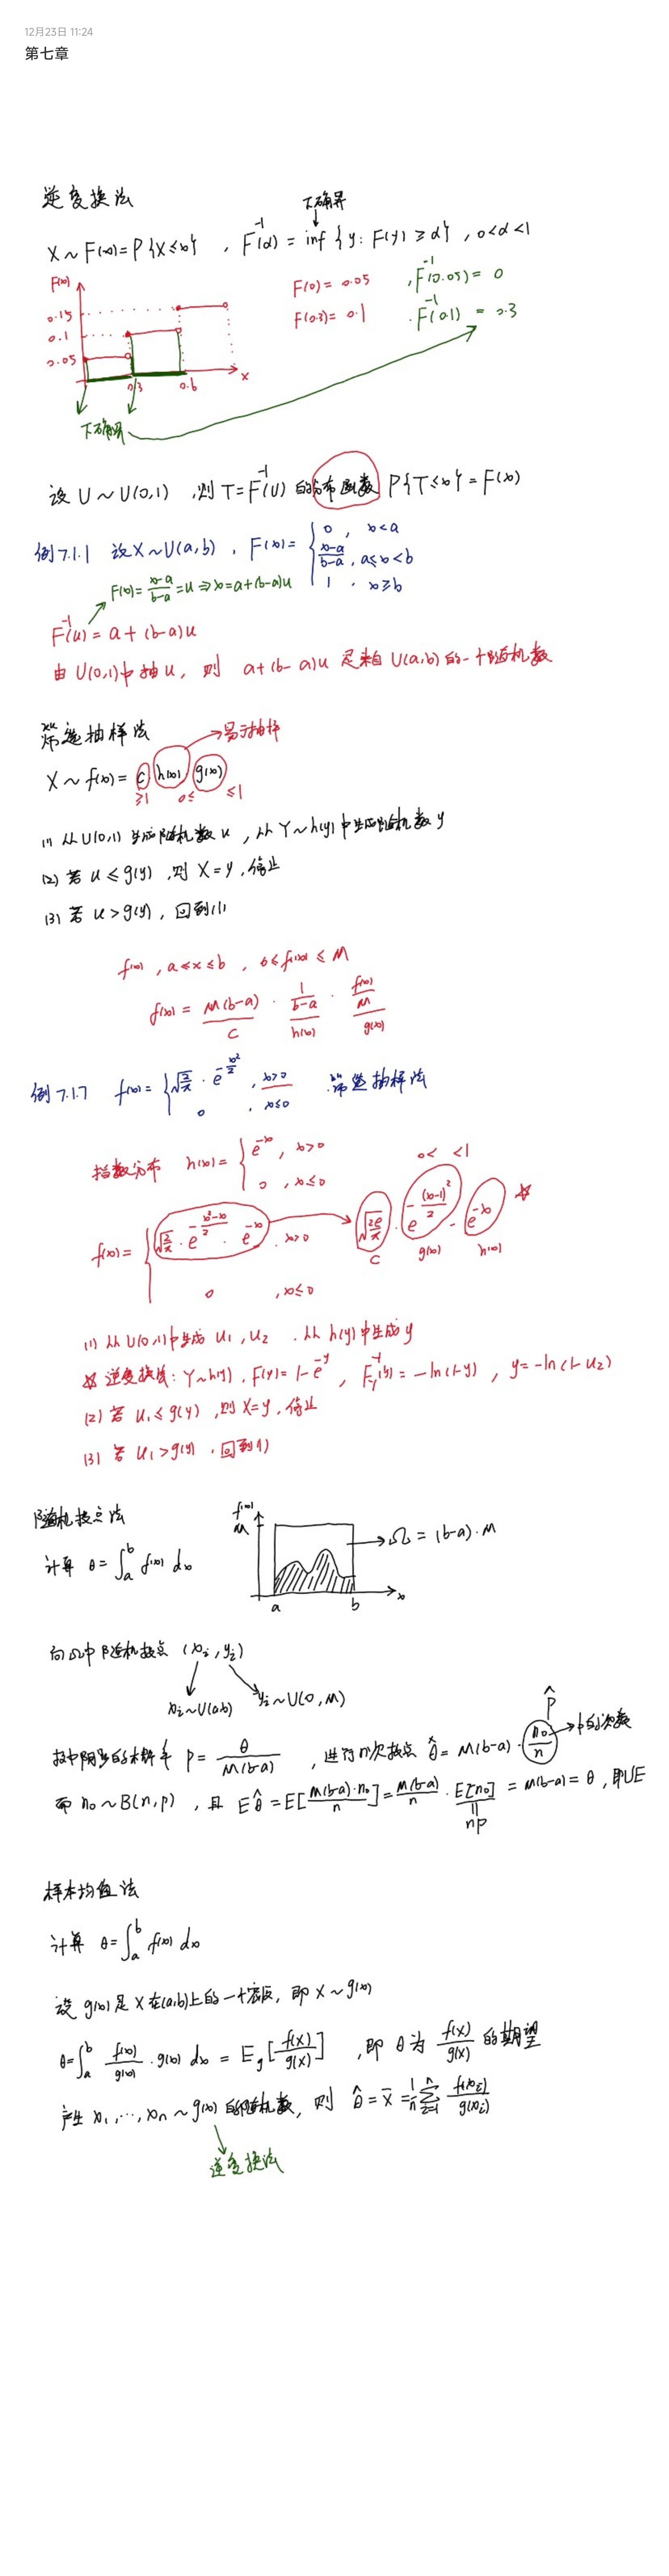 12月23日 11:24
第七章
逆变换法
下确界
X ~ F(x) = P{X ≤ x} , F⁻¹(α) = inf {y: F(y) ≥ α} , 0<α<1
F(x)
0.15
0.1
0.05
0.3
0.6
x
F(0) = 0.05 , F⁻¹(0.05) = 0
F(0.3) = 0.1 . F⁻¹(0.1) = 0.3
下确界
设 U ~ U(0,1) ,则 T = F⁻¹(U) 的分布函数 P{T ≤ x} = F(x)
例7.1.1 设 X ~ U(a,b) , F(x) = { 0 , x<a
(x-a)/(b-a) , a≤x<b
1 , x≥b
F(x) = (x-a)/(b-a) = u ⇒ x = a+(b-a)u
F⁻¹(u) = a + (b-a)u
由 U(0,1)中抽u, 则 a+(b-a)u 是来自 U(a,b) 的一个随机数
筛选抽样法
易于抽样
X ~ f(x) = c h(x) g(x)
≥1 0≤ ≤1
(1) 从 U(0,1) 生成随机数 u , 从 Y~h(y) 中生成随机数 y
(2) 若 u ≤ g(y) ,则 X = y ,停止
(3) 若 u > g(y) , 回到(1)
f(x) , a≤x≤b , 0≤f(x)≤M
f(x) = M(b-a) · 1/(b-a) · f(x)/M
c h(x) g(x)
例7.1.7 f(x) = { √(2/π) · e^(-x²/2) , x>0 . 筛选抽样法
0 , x≤0
指数分布 h(x) = { e^(-x) , x>0
0 , x≤0
0< <1
f(x) = { √(2/π) · e^(-x²/2-x) · e^(-x) , x>0 → √(2e/π) · e^(-(x-1)²/2) · e^(-x) ☆
c g(x) h(x)
0 , x≤0
(1) 从 U(0,1)中生成 u₁, u₂ . 从 h(y) 中生成 y
☆ 逆变换法: Y~h(y) , F(y) = 1-e^(-y) , F_Y⁻¹(y) = -ln(1-y) , y = -ln(1-u₂)
(2) 若 u₁ ≤ g(y) ,则 X=y ,停止
(3) 若 u₁ > g(y) , 回到(1)
随机投点法
计算 θ = ∫ₐᵇ f(x) dx
f(x)
M
a
b
x
Ω = (b-a)·M
向Ω中随机投点 (xᵢ, yᵢ)
xᵢ~U(a,b) yᵢ~U(0,M)
投中阴影的概率 p = θ/(M(b-a)) , 进行n次投点 θ̂ = M(b-a) · n₀/n
p̂
中的次数
而 n₀ ~ B(n,p) , 且 Eθ̂ = E[M(b-a)·n₀/n] = M(b-a)/n · E[n₀] = M(b-a) = θ , 即UE
np
样本均值法
计算 θ = ∫ₐᵇ f(x) dx
设 g(x) 是 X 在(a,b)上的一个密度, 即 X ~ g(x)
θ = ∫ₐᵇ f(x)/g(x) · g(x) dx = E_g[f(X)/g(X)] , 即 θ 为 f(X)/g(X) 的期望
产生 x₁, ..., xₙ ~ g(x) 的随机数, 则 θ̂ = x̄ = 1/n Σᵢ₌₁ⁿ f(xᵢ)/g(xᵢ)
逆变换法